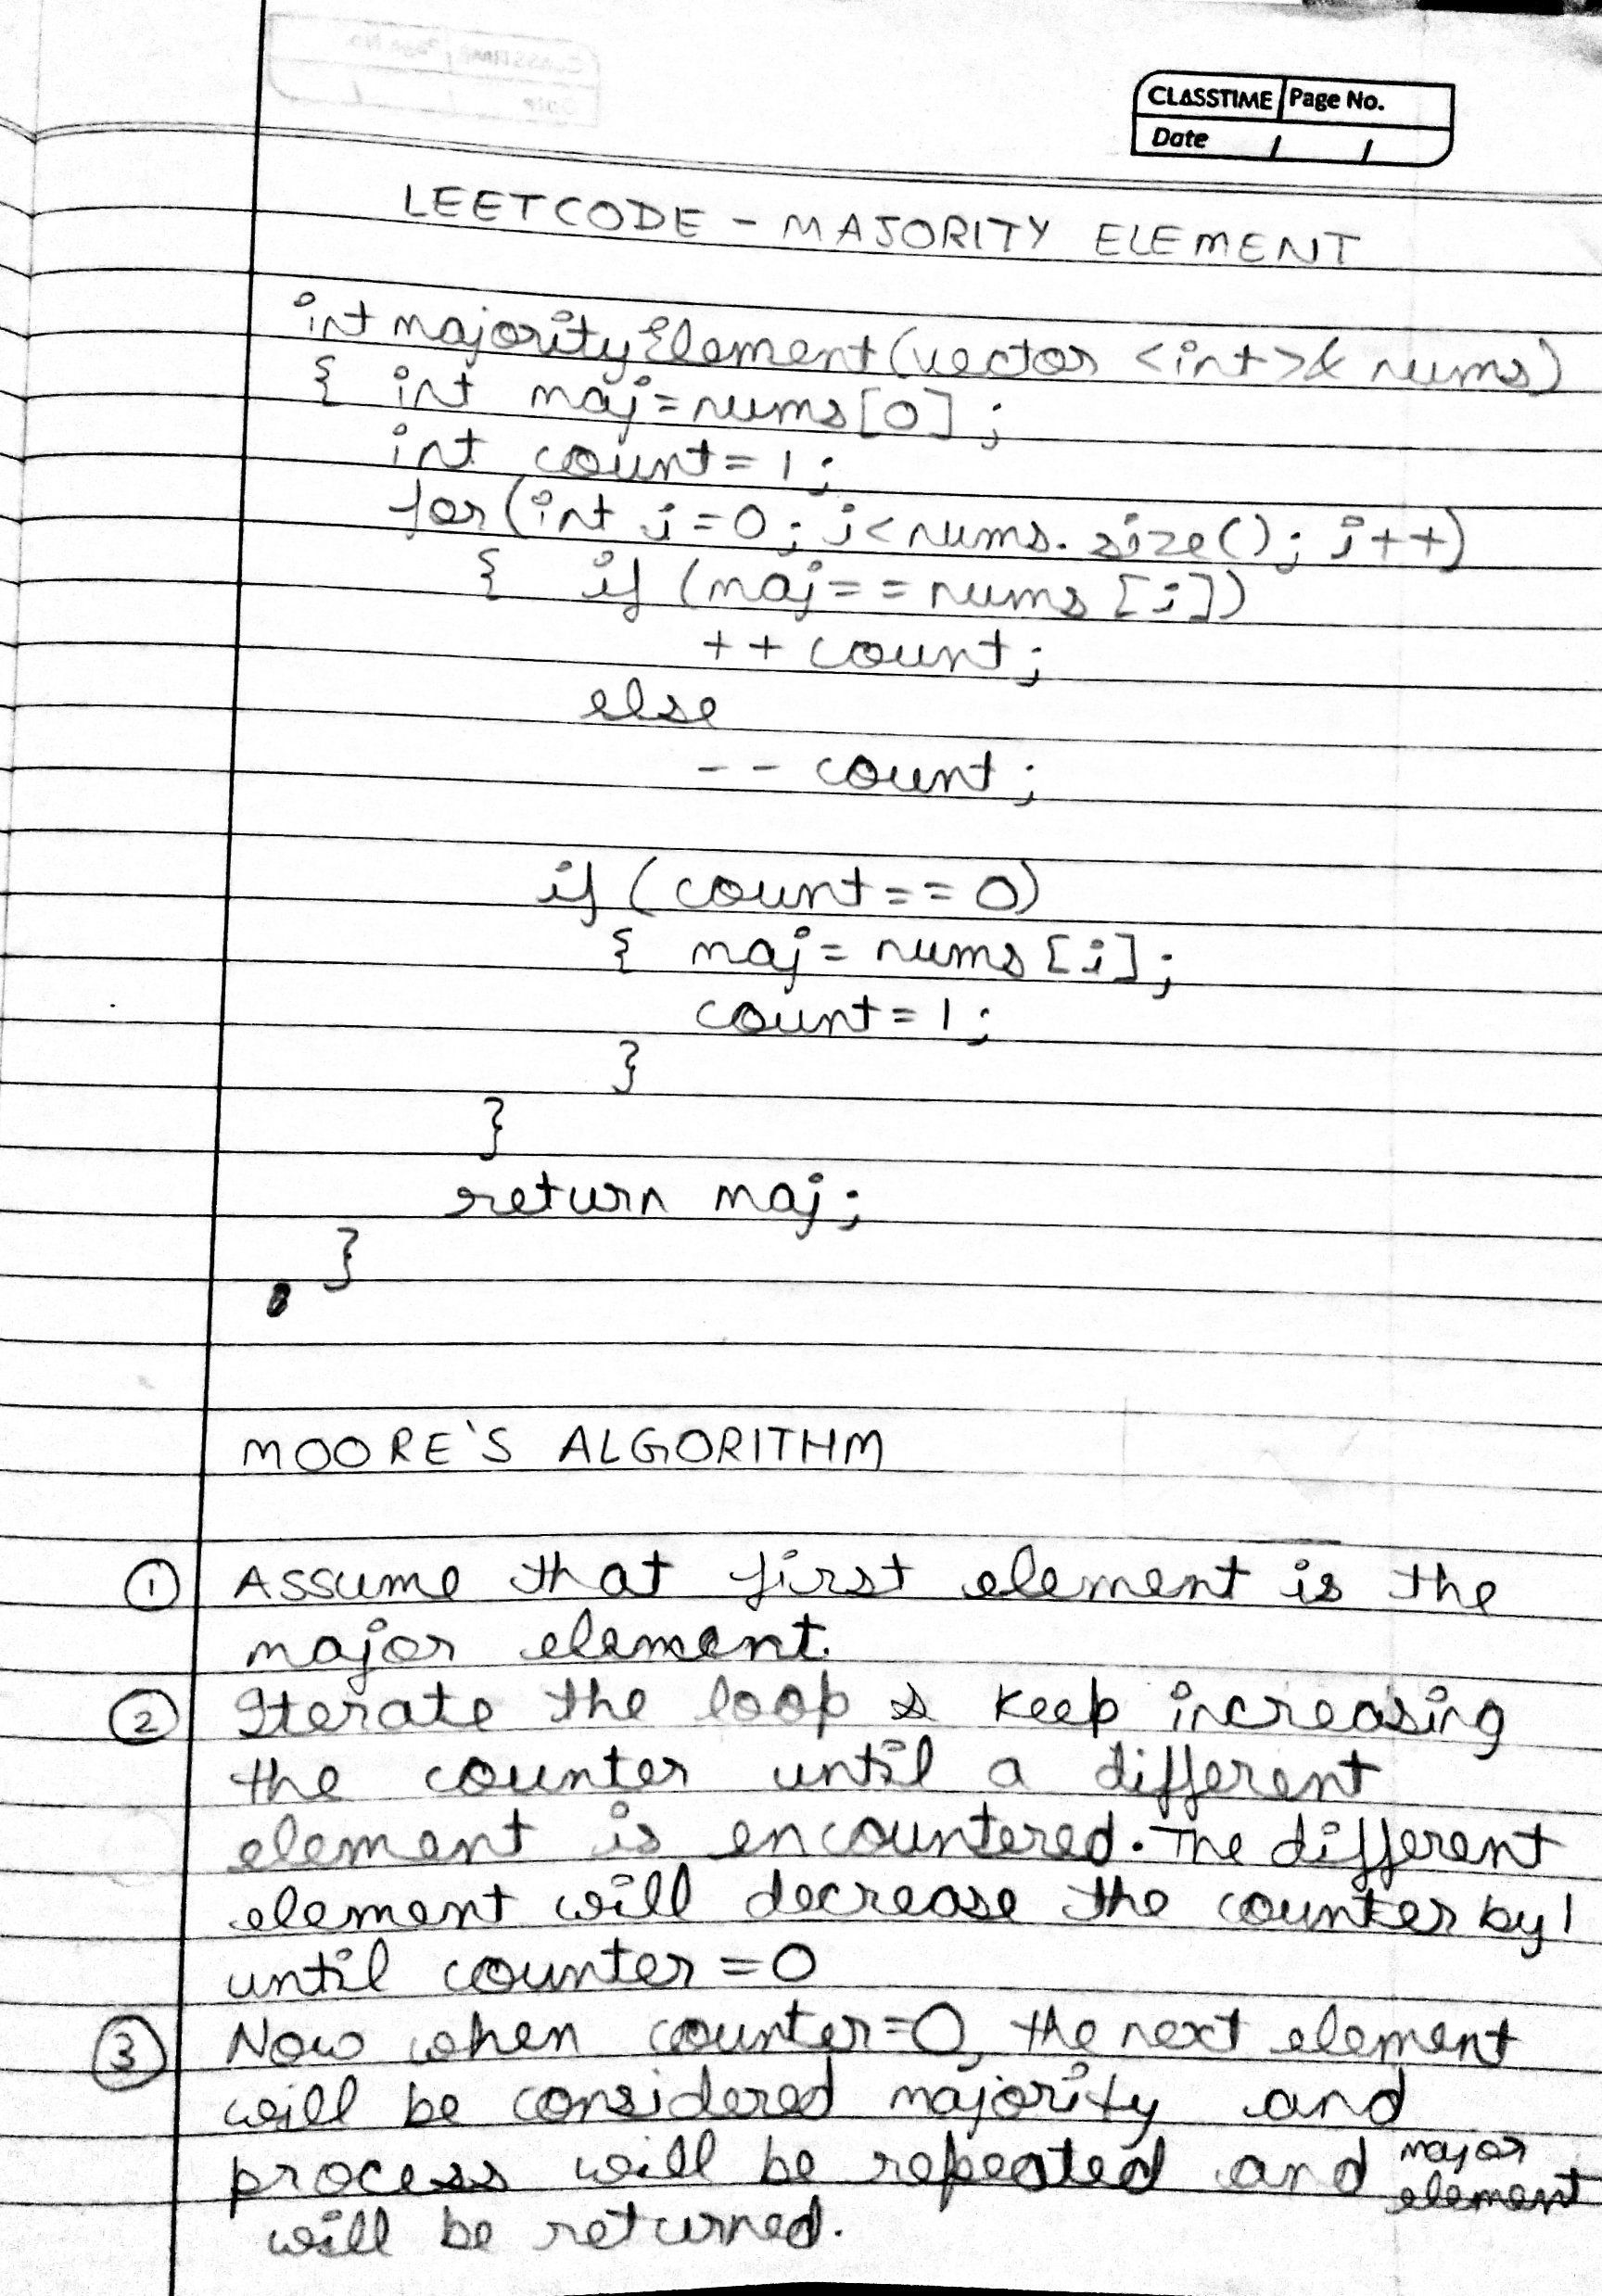 CLASSTIME Page No.
Date / /
LEETCODE - MAJORITY ELEMENT
int majorityElement(vector <int>& nums)
{ int maj=nums[0];
int count=1;
for(int i=0; i<nums.size(); i++)
{ if (maj==nums[i])
++count;
else
--count;
if (count==0)
{ maj=nums[i];
count=1;
}
}
return maj;
}
MOORE'S ALGORITHM
① Assume that first element is the
major element.
② Iterate the loop & keep increasing
the counter until a different
element is encountered. The different
element will decrease the counter by 1
until counter=0
③ Now when counter=0, the next element
will be considered majority and
process will be repeated and major element
will be returned.